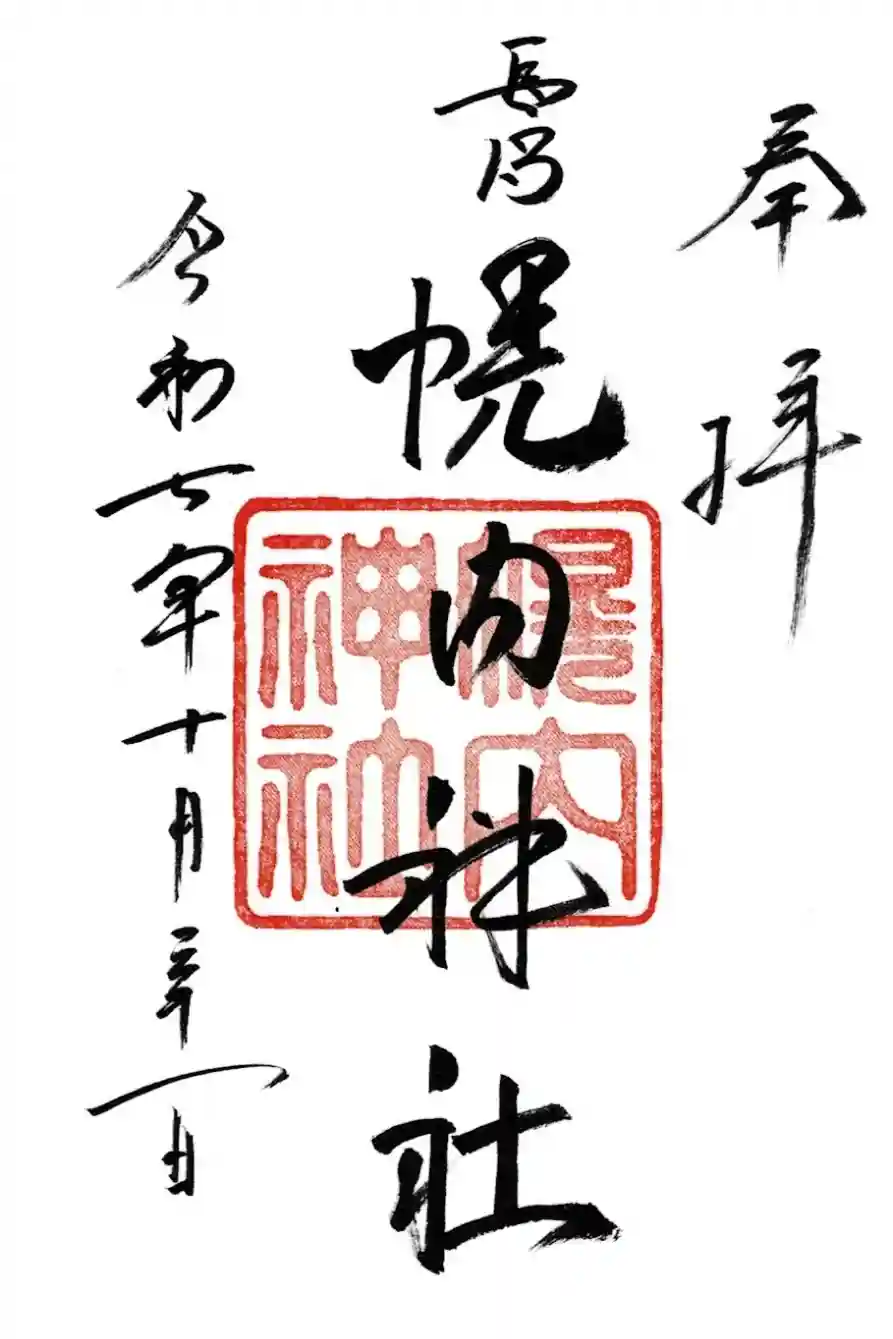 奉拝
長沼
幌内神社
幌内神社
令和七年十月三十一日